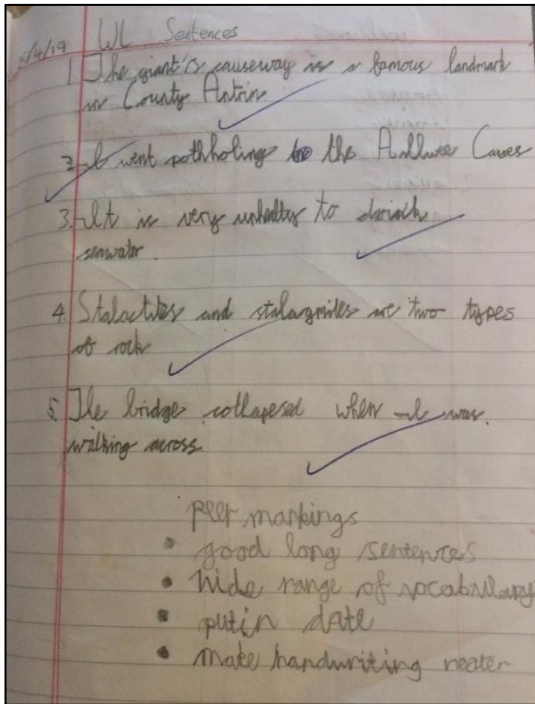 WL Sentences
5/4/19
1. The giant's causeway is a famous landmark
in County Antrim
2. I went potholing to the Aillwee Caves
3. It is very unhealty to drink
seawater.
4. Stalactites and stalagmites are two types
of rock
5. The bridge collapesed when I was.
walking across.
peer markings
• good long sentences
• wide range of vocabulary
• put in date
• make handwriting neater